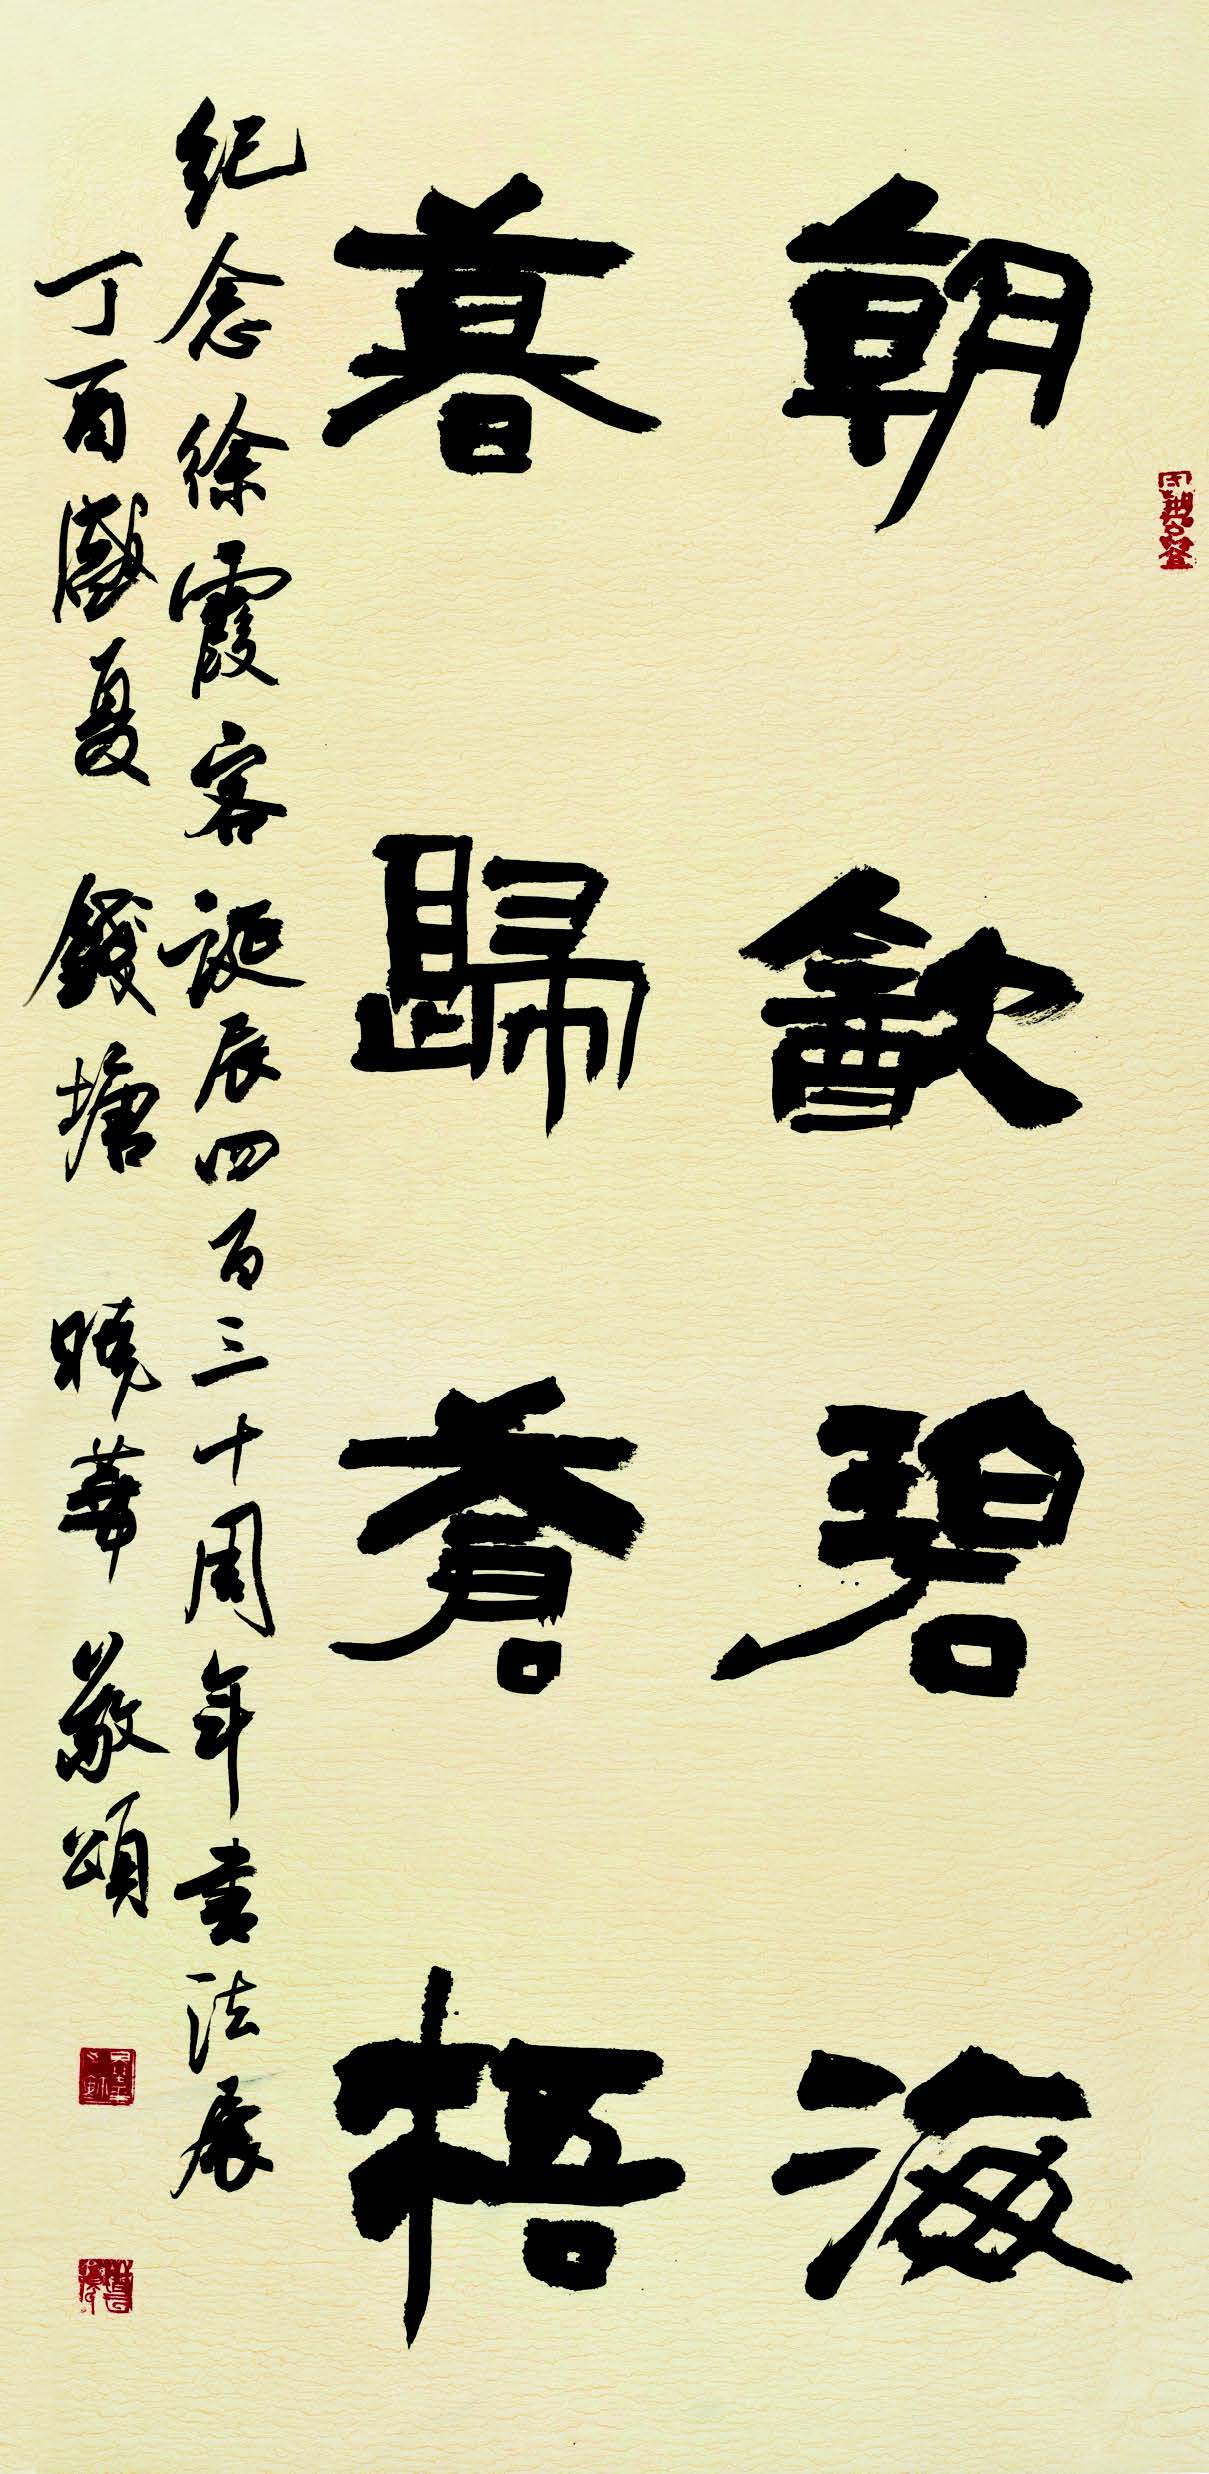 朝歙碧海
暮歸蒼梧
纪念徐霞客诞辰四百三十周年书法展
丁酉盛夏 錢塘 曉華敬頌